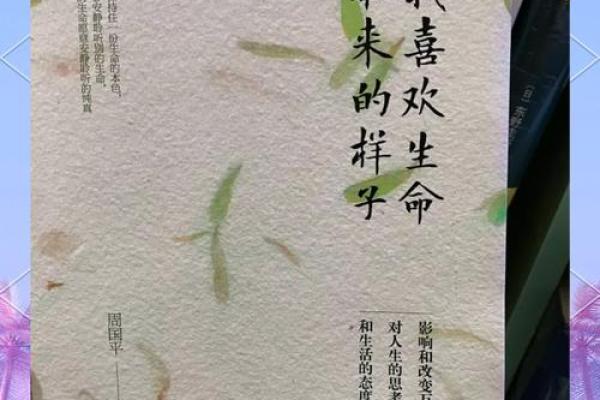 (日)东野
我喜欢生命
本来的样子
持住一份生命的本色,
安静聆听别的生命,
的生命愿意安静聆听的纯真
影响和改变万
对人生的思考
和生活的态度
周国平